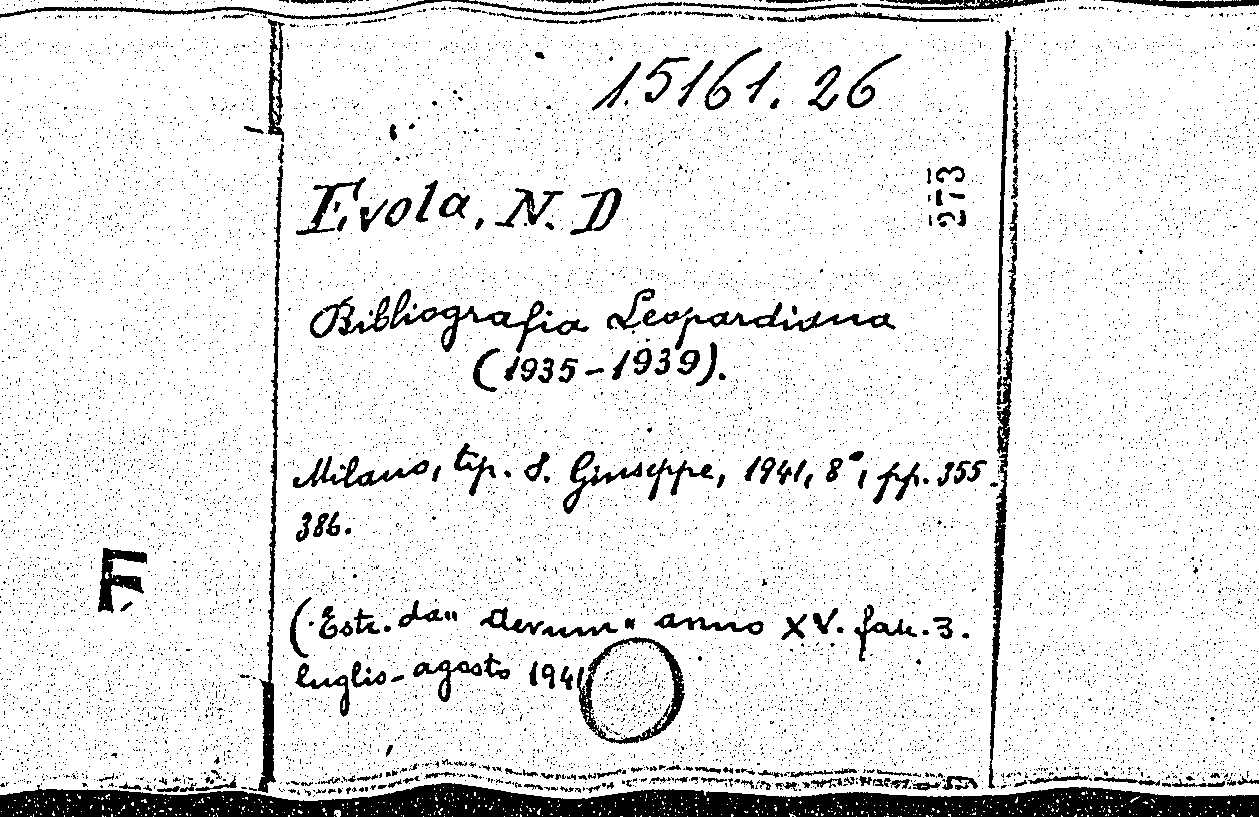 15161.26
273
Evola, N. D
Bibliografia Leopardiana
(1935-1939).
Milano, tip. S. Giuseppe, 1941, 8°, pp. 355-
386.
F
(Estr. da "Aevum" anno XV. fasc. 3.
luglio-agosto 1941